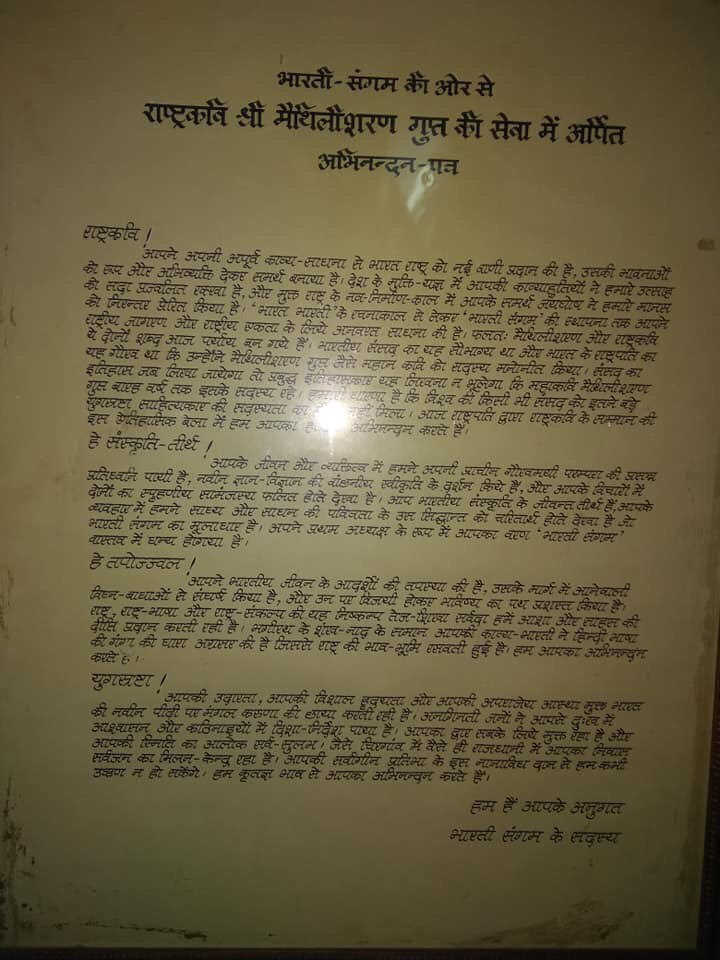 भारती-संगम की ओर से
राष्ट्रकवि श्री मैथिलीशरण गुप्त की सेवा में अर्पित
अभिनन्दन-पत्र
राष्ट्रकवि !
आपने अपनी अपूर्व काव्य-साधना से भारत राष्ट्र को नई वाणी प्रदान की है, उसकी भावनाओं
को रूप और अभिव्यक्ति देकर समर्थ बनाया है। देश के मुक्ति-यज्ञ में आपकी काव्याहुतियों ने हमारे उत्साह
को सदा प्रज्वलित रक्खा है, और मुक्त राष्ट्र के नव-निर्माण-काल में आपके समर्थ जयघोष ने हमारे मानस
को निरन्तर प्रेरित किया है। 'भारत भारती' के रचनाकाल से लेकर 'भारती संगम' की स्थापना तक आपने
राष्ट्रीय जागरण और राष्ट्रीय एकता के लिये अनवरत साधना की है। फलतः मैथिलीशरण और राष्ट्रकवि
ये दोनों शब्द आज पर्याय बन गये हैं। भारतीय संसद का यह सौभाग्य था और भारत के राष्ट्रपति का
यह गौरव था कि उन्होंने मैथिलीशरण गुप्त जैसे महान कवि को सदस्य मनोनीत किया। संसद का
इतिहास जब लिखा जायेगा तो प्रबुद्ध इतिहासकार यह लिखना न भूलेगा कि महाकवि मैथिलीशरण
गुप्त बारह वर्ष तक इसके सदस्य रहे। हमारी धारणा है कि विश्व की किसी भी संसद को इतने बड़े
युगस्रष्टा साहित्यकार की सदस्यता का नहीं मिला। आज राष्ट्रपति द्वारा राष्ट्रकवि के सम्मान की
इस ऐतिहासिक बेला में हम आपका अभिनन्दन करते हैं।
हे संस्कृति-तीर्थ !
आपके जीवन और व्यक्तित्व में हमने अपनी प्राचीन गौरवमयी परम्परा की प्रसन्न
प्रतिध्वनि पायी है, नवीन ज्ञान-विज्ञान की वांछनीय स्वीकृति के दर्शन किये हैं, और आपके विचारों में
दोनों का स्पृहणीय सामंजस्य फलित होते देखा है। आप भारतीय संस्कृति के जीवन्त तीर्थ हैं, आपके
व्यवहार में हमने साध्य और साधन की पवित्रता के उस सिद्धान्त को चरितार्थ होते देखा है जो
भारती संगम का मूलाधार है। अपने प्रथम अध्यक्ष के रूप में आपका वरण 'भारती संगम'
वास्तव में धन्य होगया है।
हे तपोज्ज्वल !
आपने भारतीय जीवन के आदर्शों की तपस्या की है, उसके मार्ग में आनेवाली
विघ्न-बाधाओं से संघर्ष किया है, और उन पर विजयी होकर भविष्य का पथ प्रशस्त किया है।
राष्ट्र, राष्ट्र-भाषा और राष्ट्र-संकल्प की यह निष्कम्प तेज-शिखा सर्वदा हमें आशा और साहस की
दीप्ति प्रदान करती रही है। भगीरथ के शंख-नाद के समान आपकी काव्य-भारती ने हिन्दी भाषा
की गंगा की धारा अग्रसर की है जिससे राष्ट्र की भाव-भूमि रसवती हुई है। हम आपका अभिनन्दन
करते हैं।
युगस्रष्टा !
आपकी उदारता, आपकी विशाल हृदयता और आपकी अपराजेय आस्था मुक्त भारत
की नवीन पीढ़ी पर मंगल करुणा की छाया करती रही है। अनगिनती जनों ने आपसे दुःख में
आश्वासन और कठिनाइयों में दिशा-निर्देश पाया है। आपका द्वार सबके लिये मुक्त रहा है और
आपकी स्मिति का आलोक सर्व-सुलभ। जैसे चिरगांव में वैसे ही राजधानी में आपका निवास
सर्वजन का मिलन-केन्द्र रहा है। आपकी सर्वांगीन प्रतिभा के इस नानाविध दान से हम कभी
उऋण न हो सकेंगे। हम कृतज्ञ भाव से आपका अभिनन्दन करते हैं।
हम हैं आपके अनुगत
भारती संगम के सदस्य